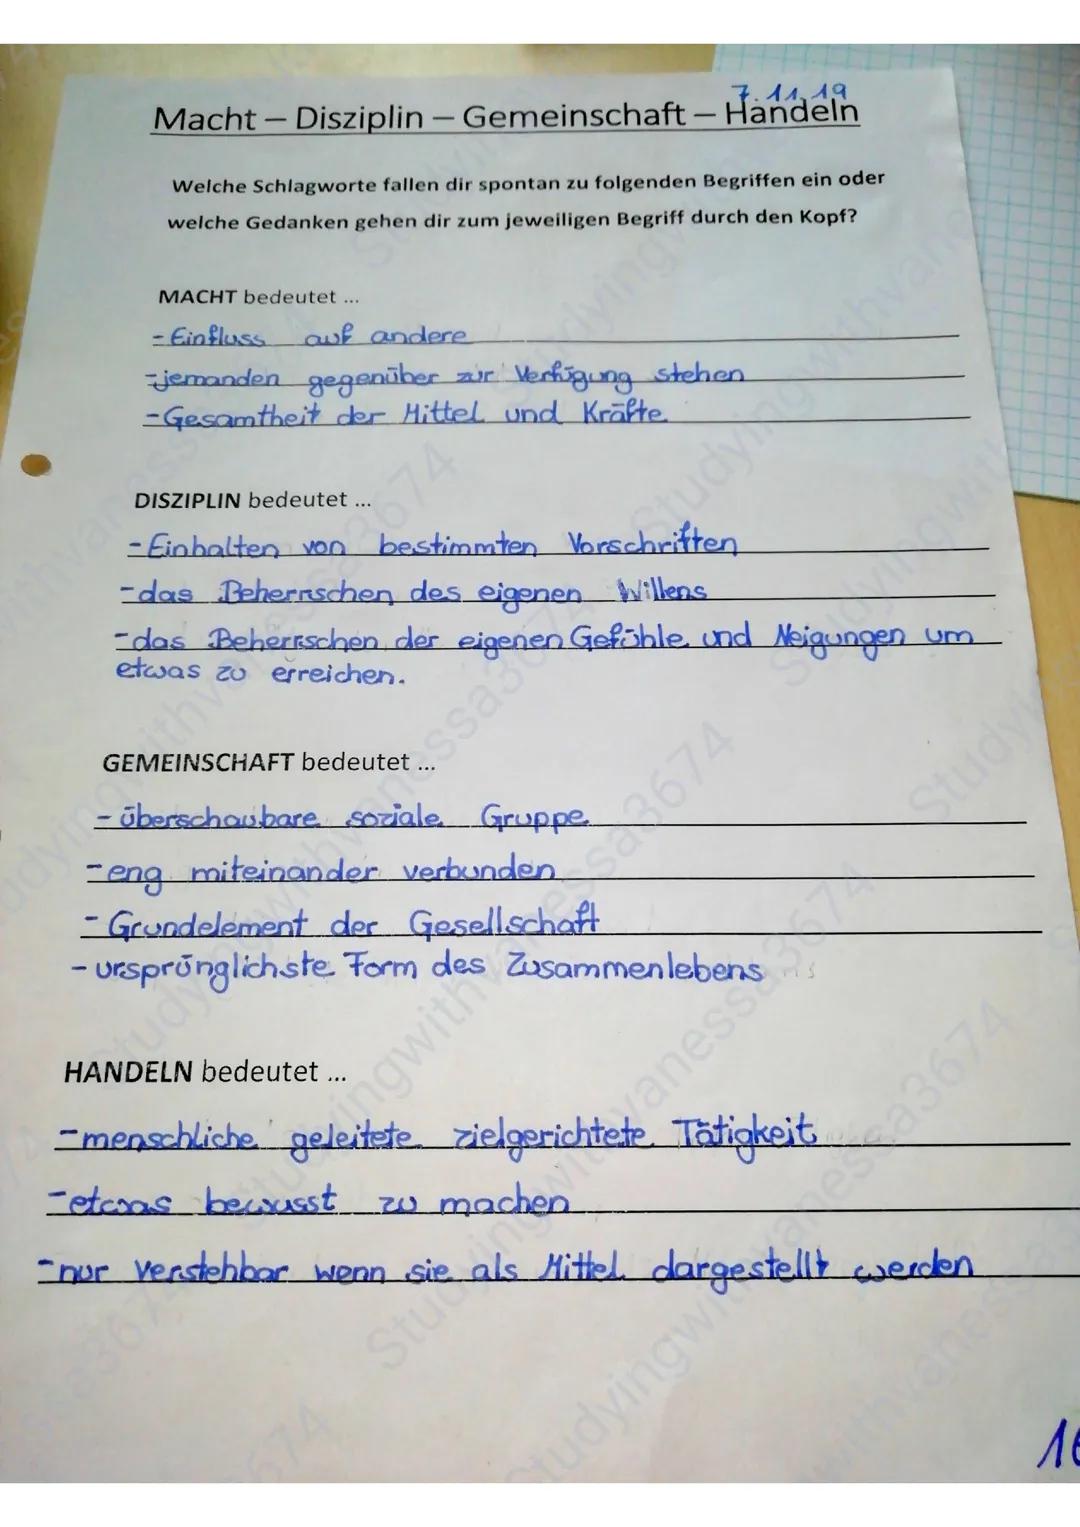 7.11.19
Macht – Disziplin – Gemeinschaft – Handeln
Welche Schlagworte fallen dir spontan zu folgenden Begriffen ein oder
welche Gedanken gehen dir zum jeweiligen Begriff durch den Kopf?
MACHT bedeutet ...
- Einfluss auf andere
- jemanden gegenüber zur Verfügung stehen
- Gesamtheit der Mittel und Kräfte
DISZIPLIN bedeutet ...
- Einhalten von bestimmten Vorschriften
- das Beherrschen des eigenen Willens
- das Beherrschen der eigenen Gefühle und Neigungen um
etwas zu erreichen.
GEMEINSCHAFT bedeutet ...
- überschaubare soziale Gruppe
- eng miteinander verbunden
- Grundelement der Gesellschaft
- ursprünglichste Form des Zusammenlebens
HANDELN bedeutet ...
- menschliche geleitete zielgerichtete Tätigkeit
- etwas bewusst zu machen
- nur verstehbar wenn sie als Mittel dargestellt werden
Studyingwithvanessa3674